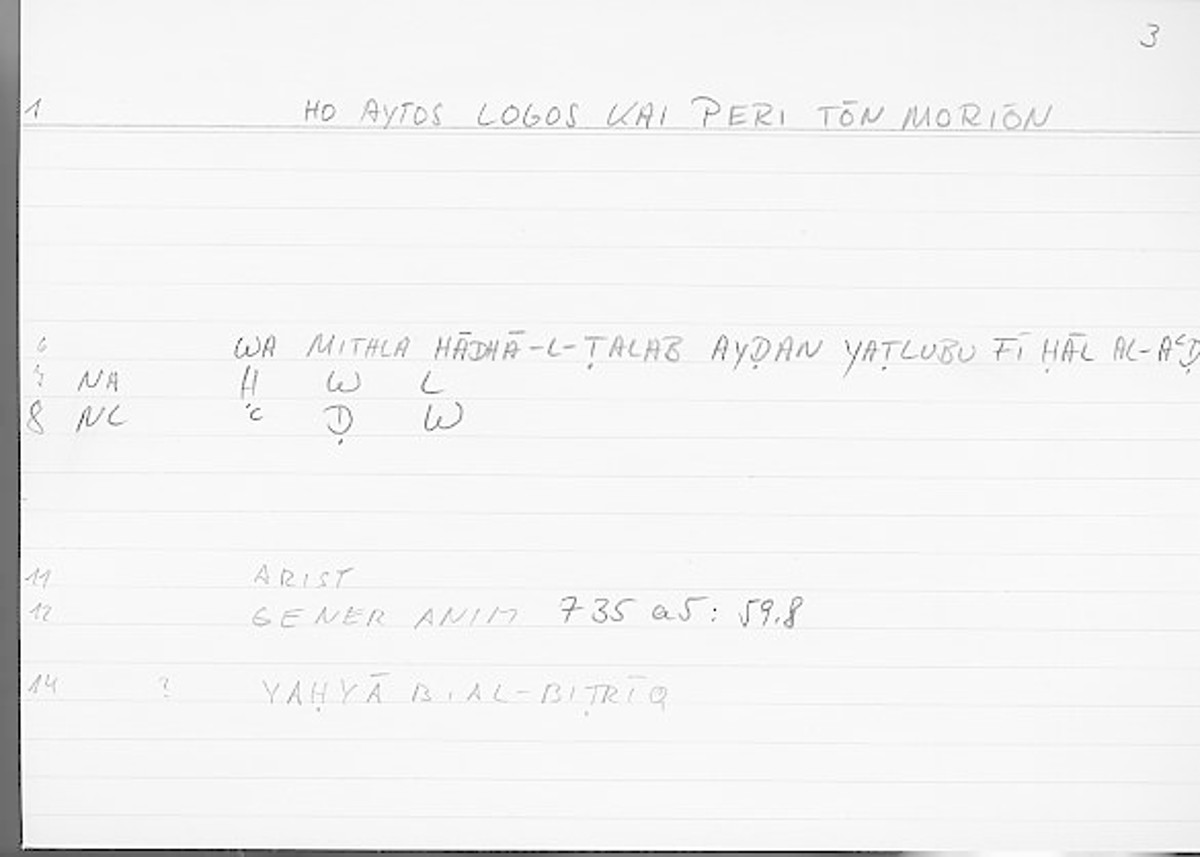 3
1 HO AYTOS LOGOS KAI PERI TŌN MORIŌN
6 WA MITHLA HĀDHĀ-L-ṬALAB AYḌAN YAṬLUBU FĪ ḤĀL AL-AʿḌ
7 NA H W L
8 NC ʿ Ḍ W
11 ARIST
12 GENER ANIM 735 a5: 59.8
14 ? YAḤYĀ B. AL-BIṬRĪQ